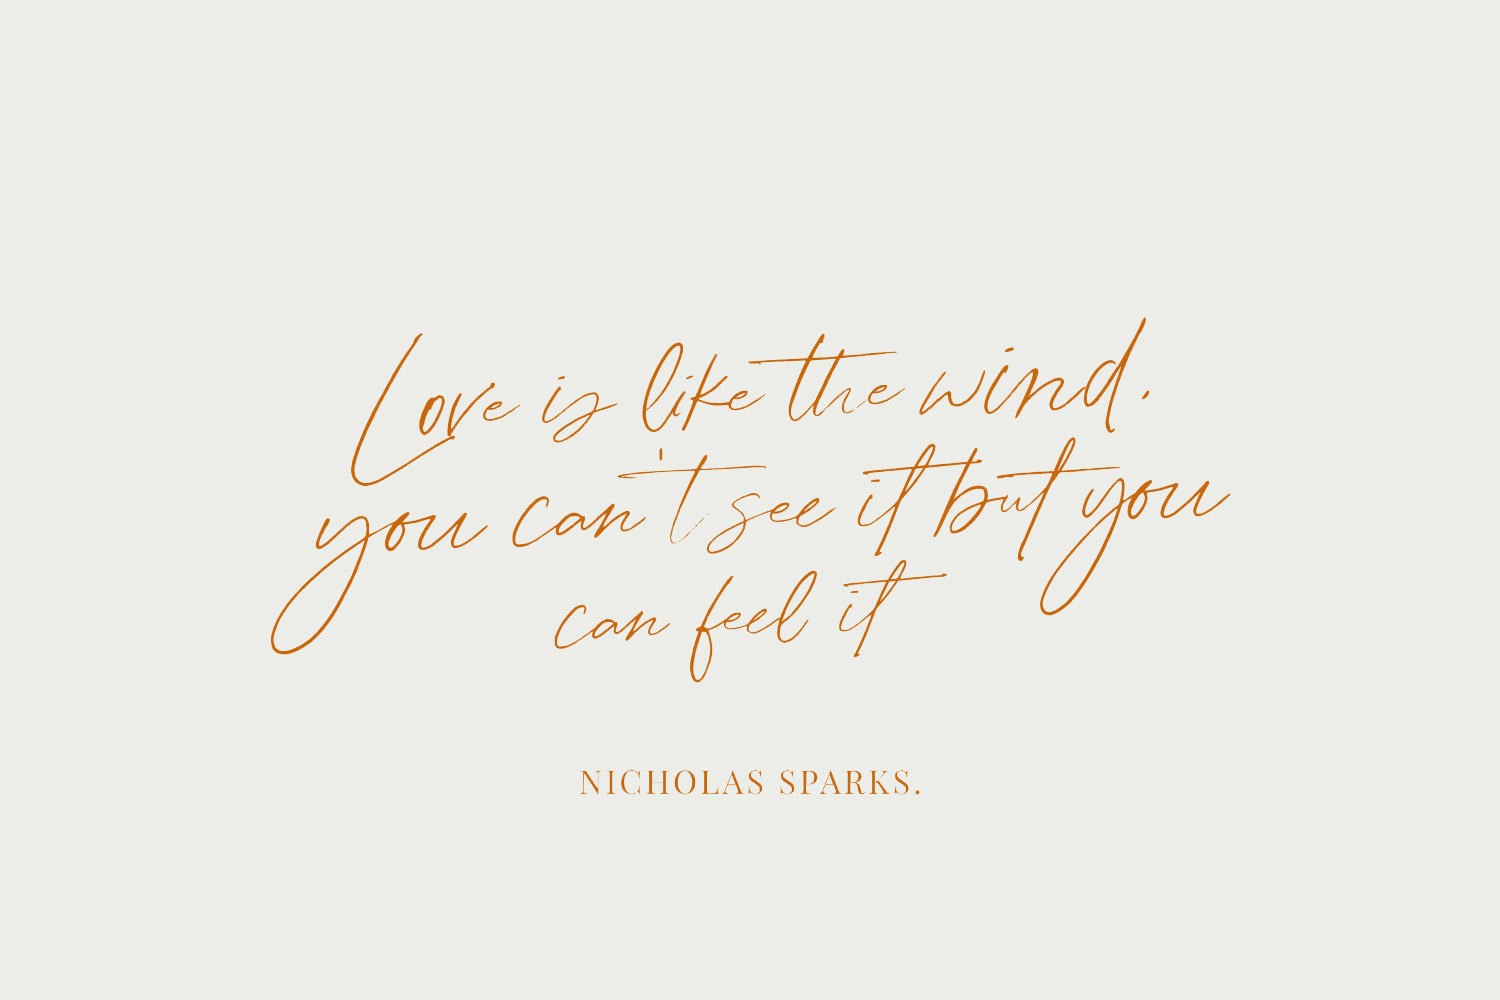 Love is like the wind,
you can't see it but you
can feel it
NICHOLAS SPARKS.